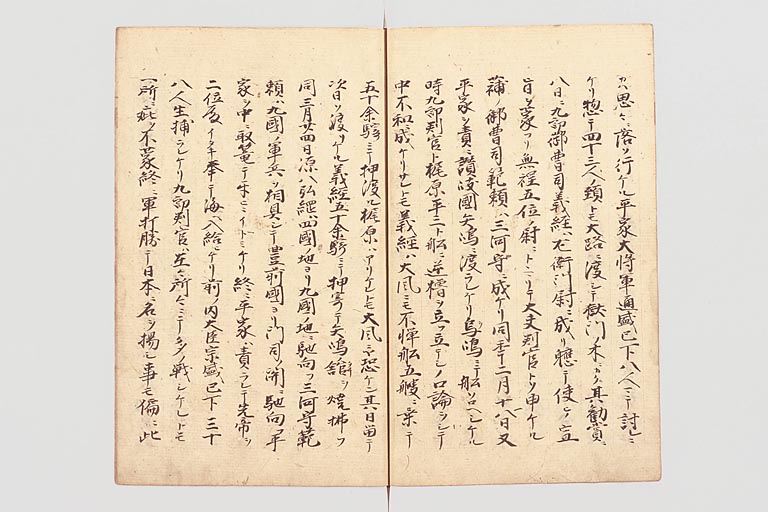 ハ思々ニ落ソ行ケル平家大将軍通盛已下八人ニテ討レニ
ケリ惣テ四十三人ノ頸トモ大路ヲ渡シテ獄門ノ木ニカク其勧賞ニ
八日ニ九郎御曹司義経ハ左衛門尉ニ成リ軈テ使ノ宣
旨ヲ蒙フリ無程五位尉ニトマリテ大夫判官トソ申ケル
蒲ノ御曹司範頼ハ三河守ニ成ケリ同年十二月十八日又
平家ヲ責ニ讃岐國矢嶋ニ渡ラレケリ 嶋ニテ船ソロヘシケル
時九郎判官ト梶原平三ト船ニ逆櫓ヲ立ツ立テシノ口論ヲシテ
中不和成ケリサレトモ義経ハ大風ニモ不憚船五艘ニ乗テ
五十余騎ニテ押渡ル梶原ハアリケレトモ大風ニヤ恐ケン其日留テ
次日ソ渡リケル義経五十余騎ニテ押寄テ矢嶋館ヲ焼拂フ
同三月廿四日源八弘綱ハ四國ノ地ヨリ九國ノ地ニ馳向フ三河守範
頼ハ九國ノ軍兵ヲ相具シテ豊前國ヨリ門司ノ関ニ馳向フ平
家ヲ中ニ取篭テ ケリ終ニ平家ハ責ラレテ先帝ヲ
二位殿イタキ奉テ海ヘ入給ケリ前ノ内大臣宗盛已下三十
八人生捕ラレケリ九郎判官ハ至ル所々ニテ多ノ戦シケレトモ
一所ニ疵ヲ不蒙終ニ軍打勝テ日本ニ名ヲ揚シ事モ偏ニ此